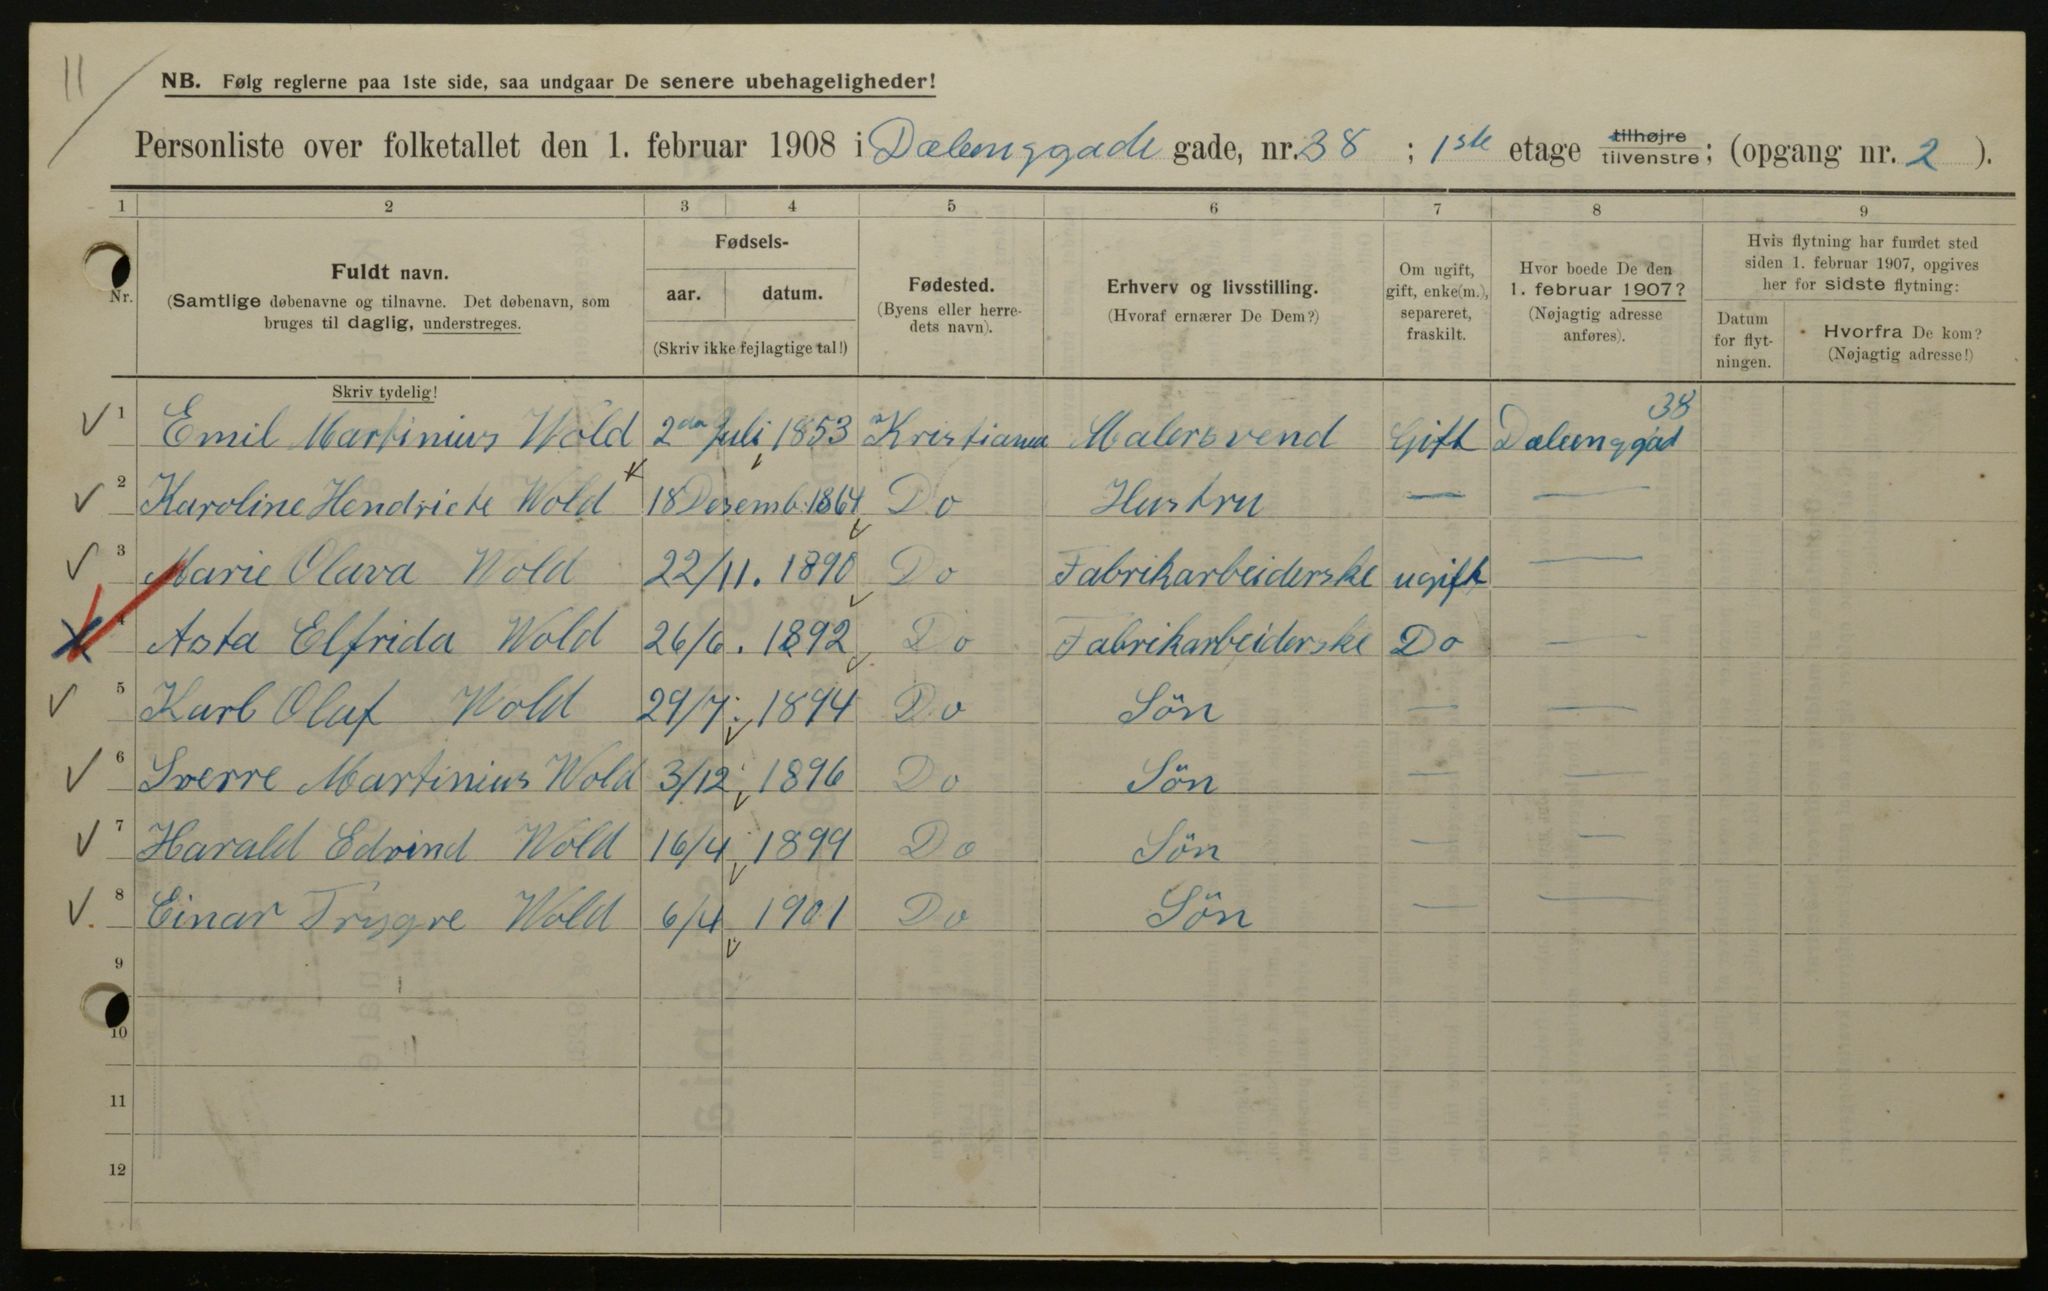 11
NB. Følg reglerne paa 1ste side, saa undgaar De senere ubehageligheder!
Personliste over folketallet den 1. februar 1908 i Dælenggade gade, nr. 38 ; 1ste etage tilhøjre tilvenstre; (opgang nr. 2 ).
1 2 3 4 5 6 7 8 9
Nr.
Fuldt navn.
(Samtlige døbenavne og tilnavne. Det døbenavn, som
bruges til daglig, understreges.
Skriv tydelig!
Fødsels-
aar. datum.
(Skriv ikke fejlagtige tal!)
Fødested.
(Byens eller herre-
dets navn).
Erhverv og livsstilling.
(Hvoraf ernærer De Dem?)
Om ugift,
gift, enke(m.),
separeret,
fraskilt.
Hvor boede De den
1. februar 1907?
(Nøjagtig adresse
anføres).
Hvis flytning har fundet sted
siden 1. februar 1907, opgives
her for sidste flytning:
Datum
for flyt-
ningen.
Hvorfra De kom?
(Nøjagtig adresse!)
1 Emil Martinius Wold 2den Juli 1853 Kristiania Malersvend Gift Dælenggad 38
2 Karoline Hendriete Wold 18 Desemb. 1864 Do Hustru — —
3 Marie Olava Wold 22/11. 1890 Do Fabrikarbeiderske ugift —
4 Asta Elfrida Wold 26/6. 1892 Do Fabrikarbeiderske Do —
5 Karl Olaf Wold 29/7. 1894 Do Sön — —
6 Sverre Martinius Wold 3/12 1896 Do Sön — —
7 Harald Edvind Wold 16/4 1899 Do Sön — —
8 Einar Trygve Wold 6/4 1901 Do Sön — —
9
10
11
12